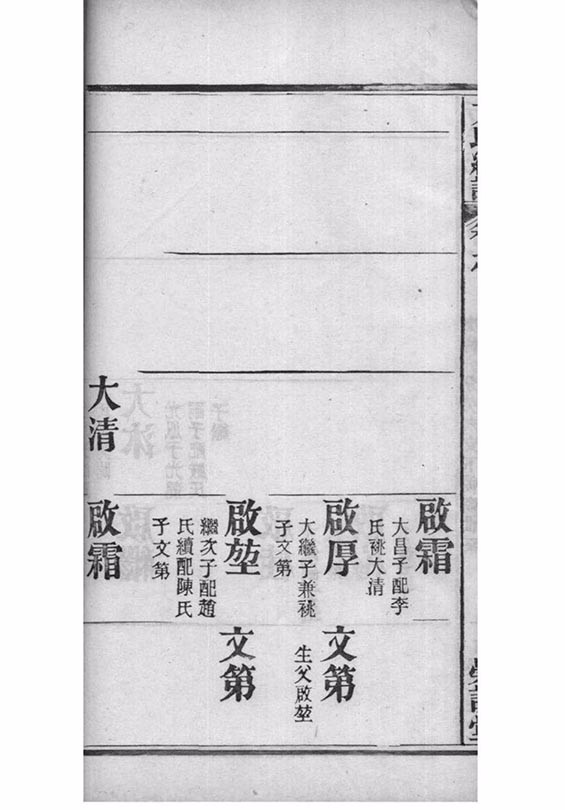 啟霜
大昌子配李
氏祧大清
啟厚
大繼子兼祧
子文第
文第
生父啟堃
啟堃
繼次子配趙
氏續配陳氏
子文第
文第
大清
啟霜